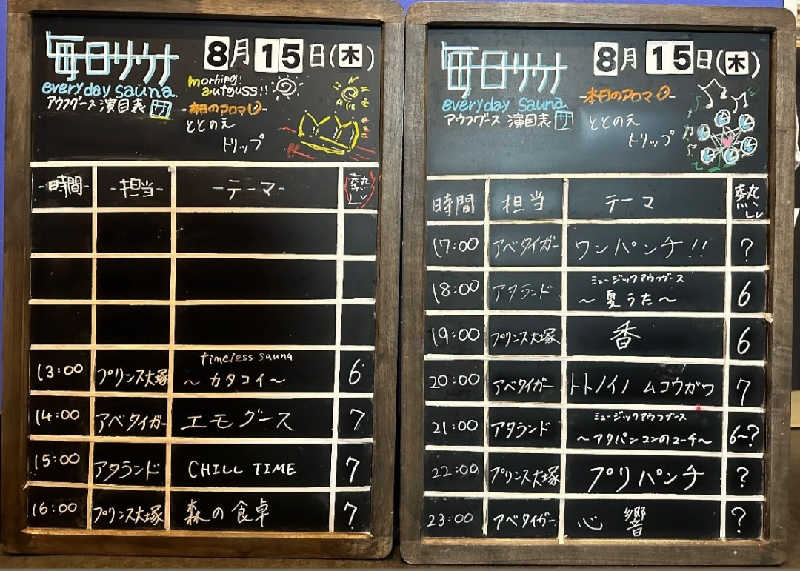 毎日サウナ
8月15日(木)
everyday sauna
morning!
aufguss!!
アウフグース演目表
-本日のアロマ-
ととのえ
トリップ
-時間- -担当- -テーマ- 熱Lv
timeless sauna
13:00 プリンス大塚 ～カタコイ～ 6
14:00 アベタイガー エモグース 7
15:00 アタランド CHILL TIME 7
16:00 プリンス大塚 森の食卓 7
毎日サウナ
8月15日(木)
everyday sauna
アウフグース 演目表
-本日のアロマ-
ととのえ
トリップ
時間 担当 テーマ 熱Lv
17:00 アベタイガー ワンパンチ!! ?
ミュージックアウフグース
18:00 アタランド ～夏うた～ 6
19:00 プリンス大塚 香 6
20:00 アベタイガー トトノイノ ムコウガワ 7
ミュージックアウフグース
21:00 アタランド ～アタパンコンのコーチ～ 6~?
22:00 プリンス大塚 プリパンチ ?
23:00 アベタイガー 心響 ?